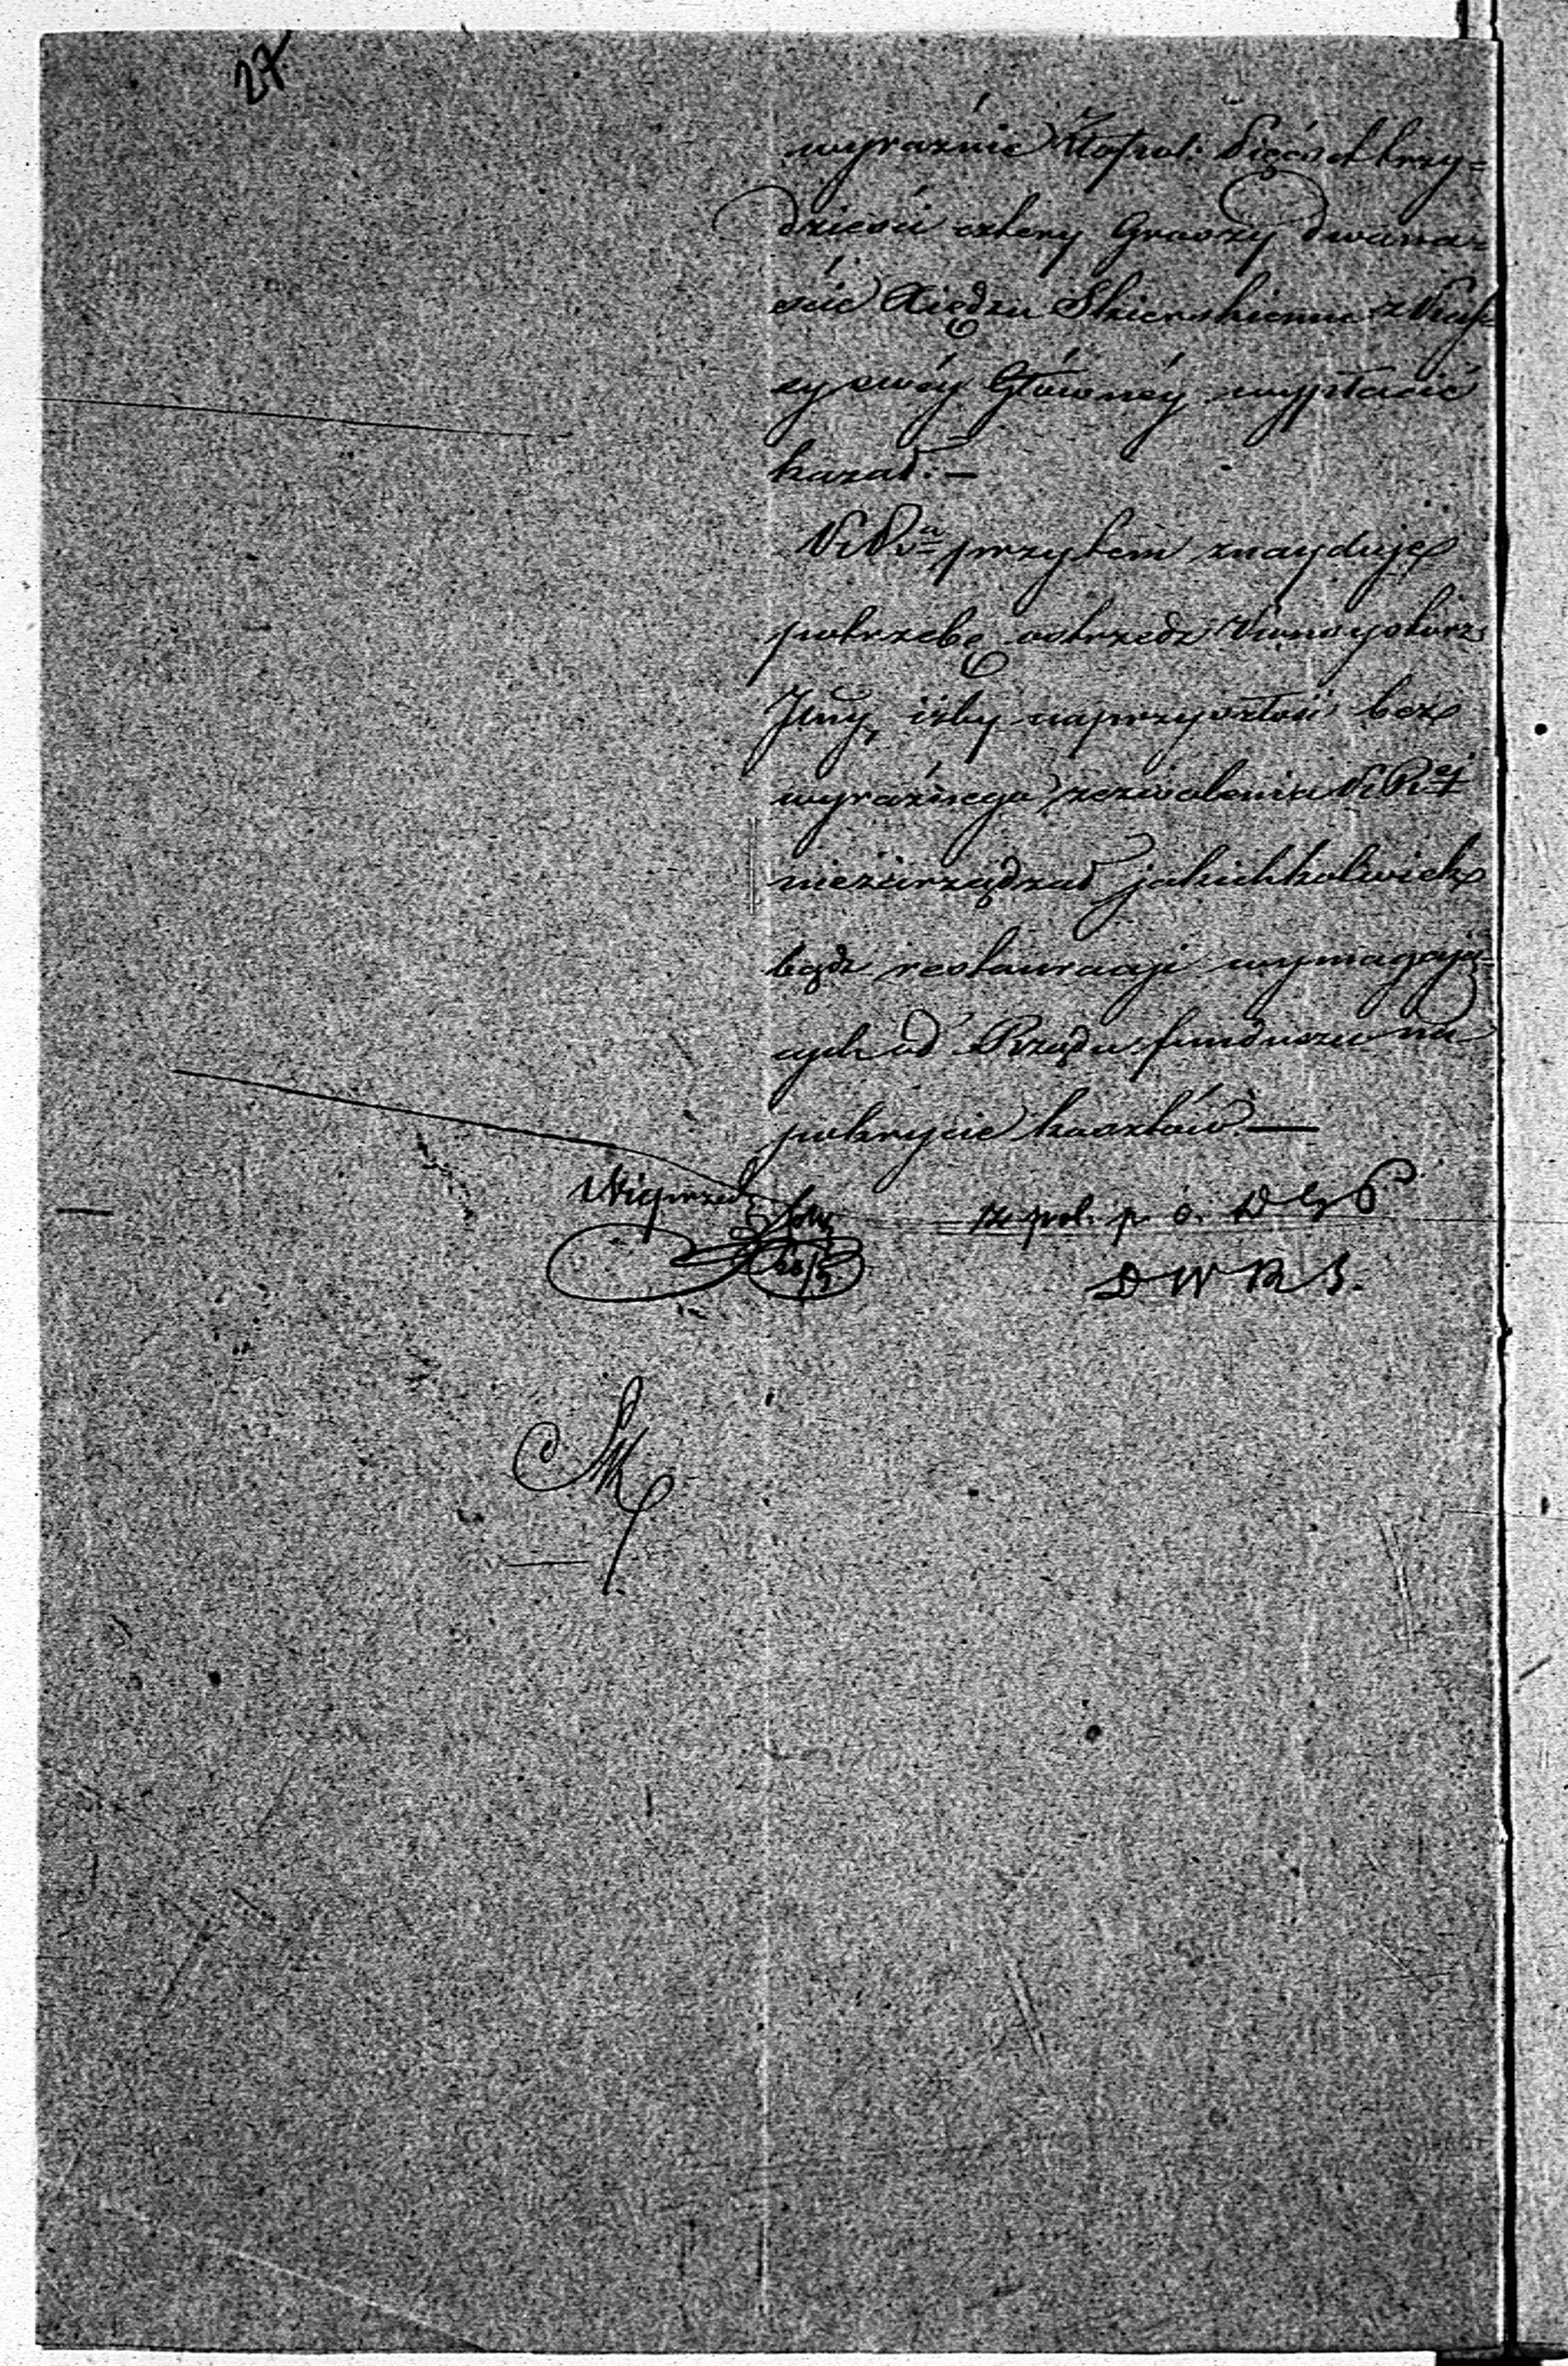 27.
wyraźnie Złotpol: Pięćset trzy=
dzieści cztery Groszy dwana=
ście Xiędzu Skierskiemu z Kas=
sy swéy Głównéy wypłacić
kazał. —
przytem znayduje
potrzebę ostrzedz Konsystorz
Jlny, iżby naprzyszłość bez
wyraźnego zezwolenia
niezarządzał jakichkolwiek
bądź restauracji wymagają=
cych od Rządu funduszu na
pokrycie kosztów —
z pol. p. o. D G
D W R S.